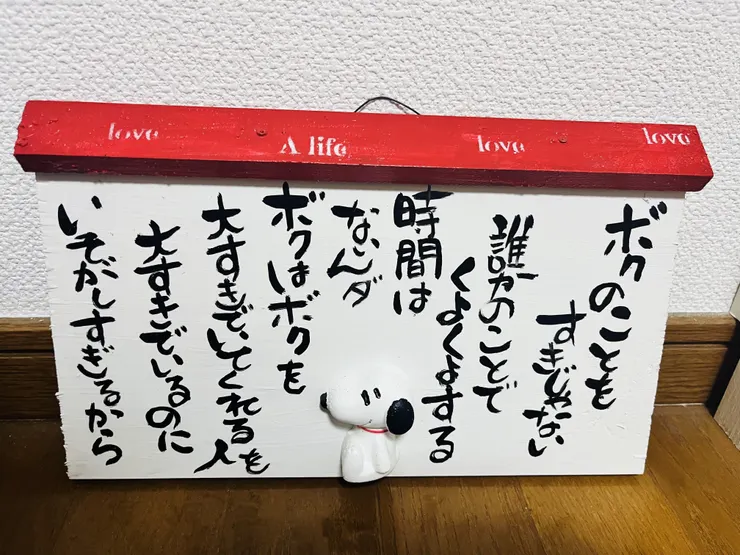 love A life love love
ボクのことも
すきじゃない
誰かのことで
くよくよする
時間は
ないんダ
ボクはボクを
大すきでいてくれる人を
大すきでいるのに
いそがしすぎるから